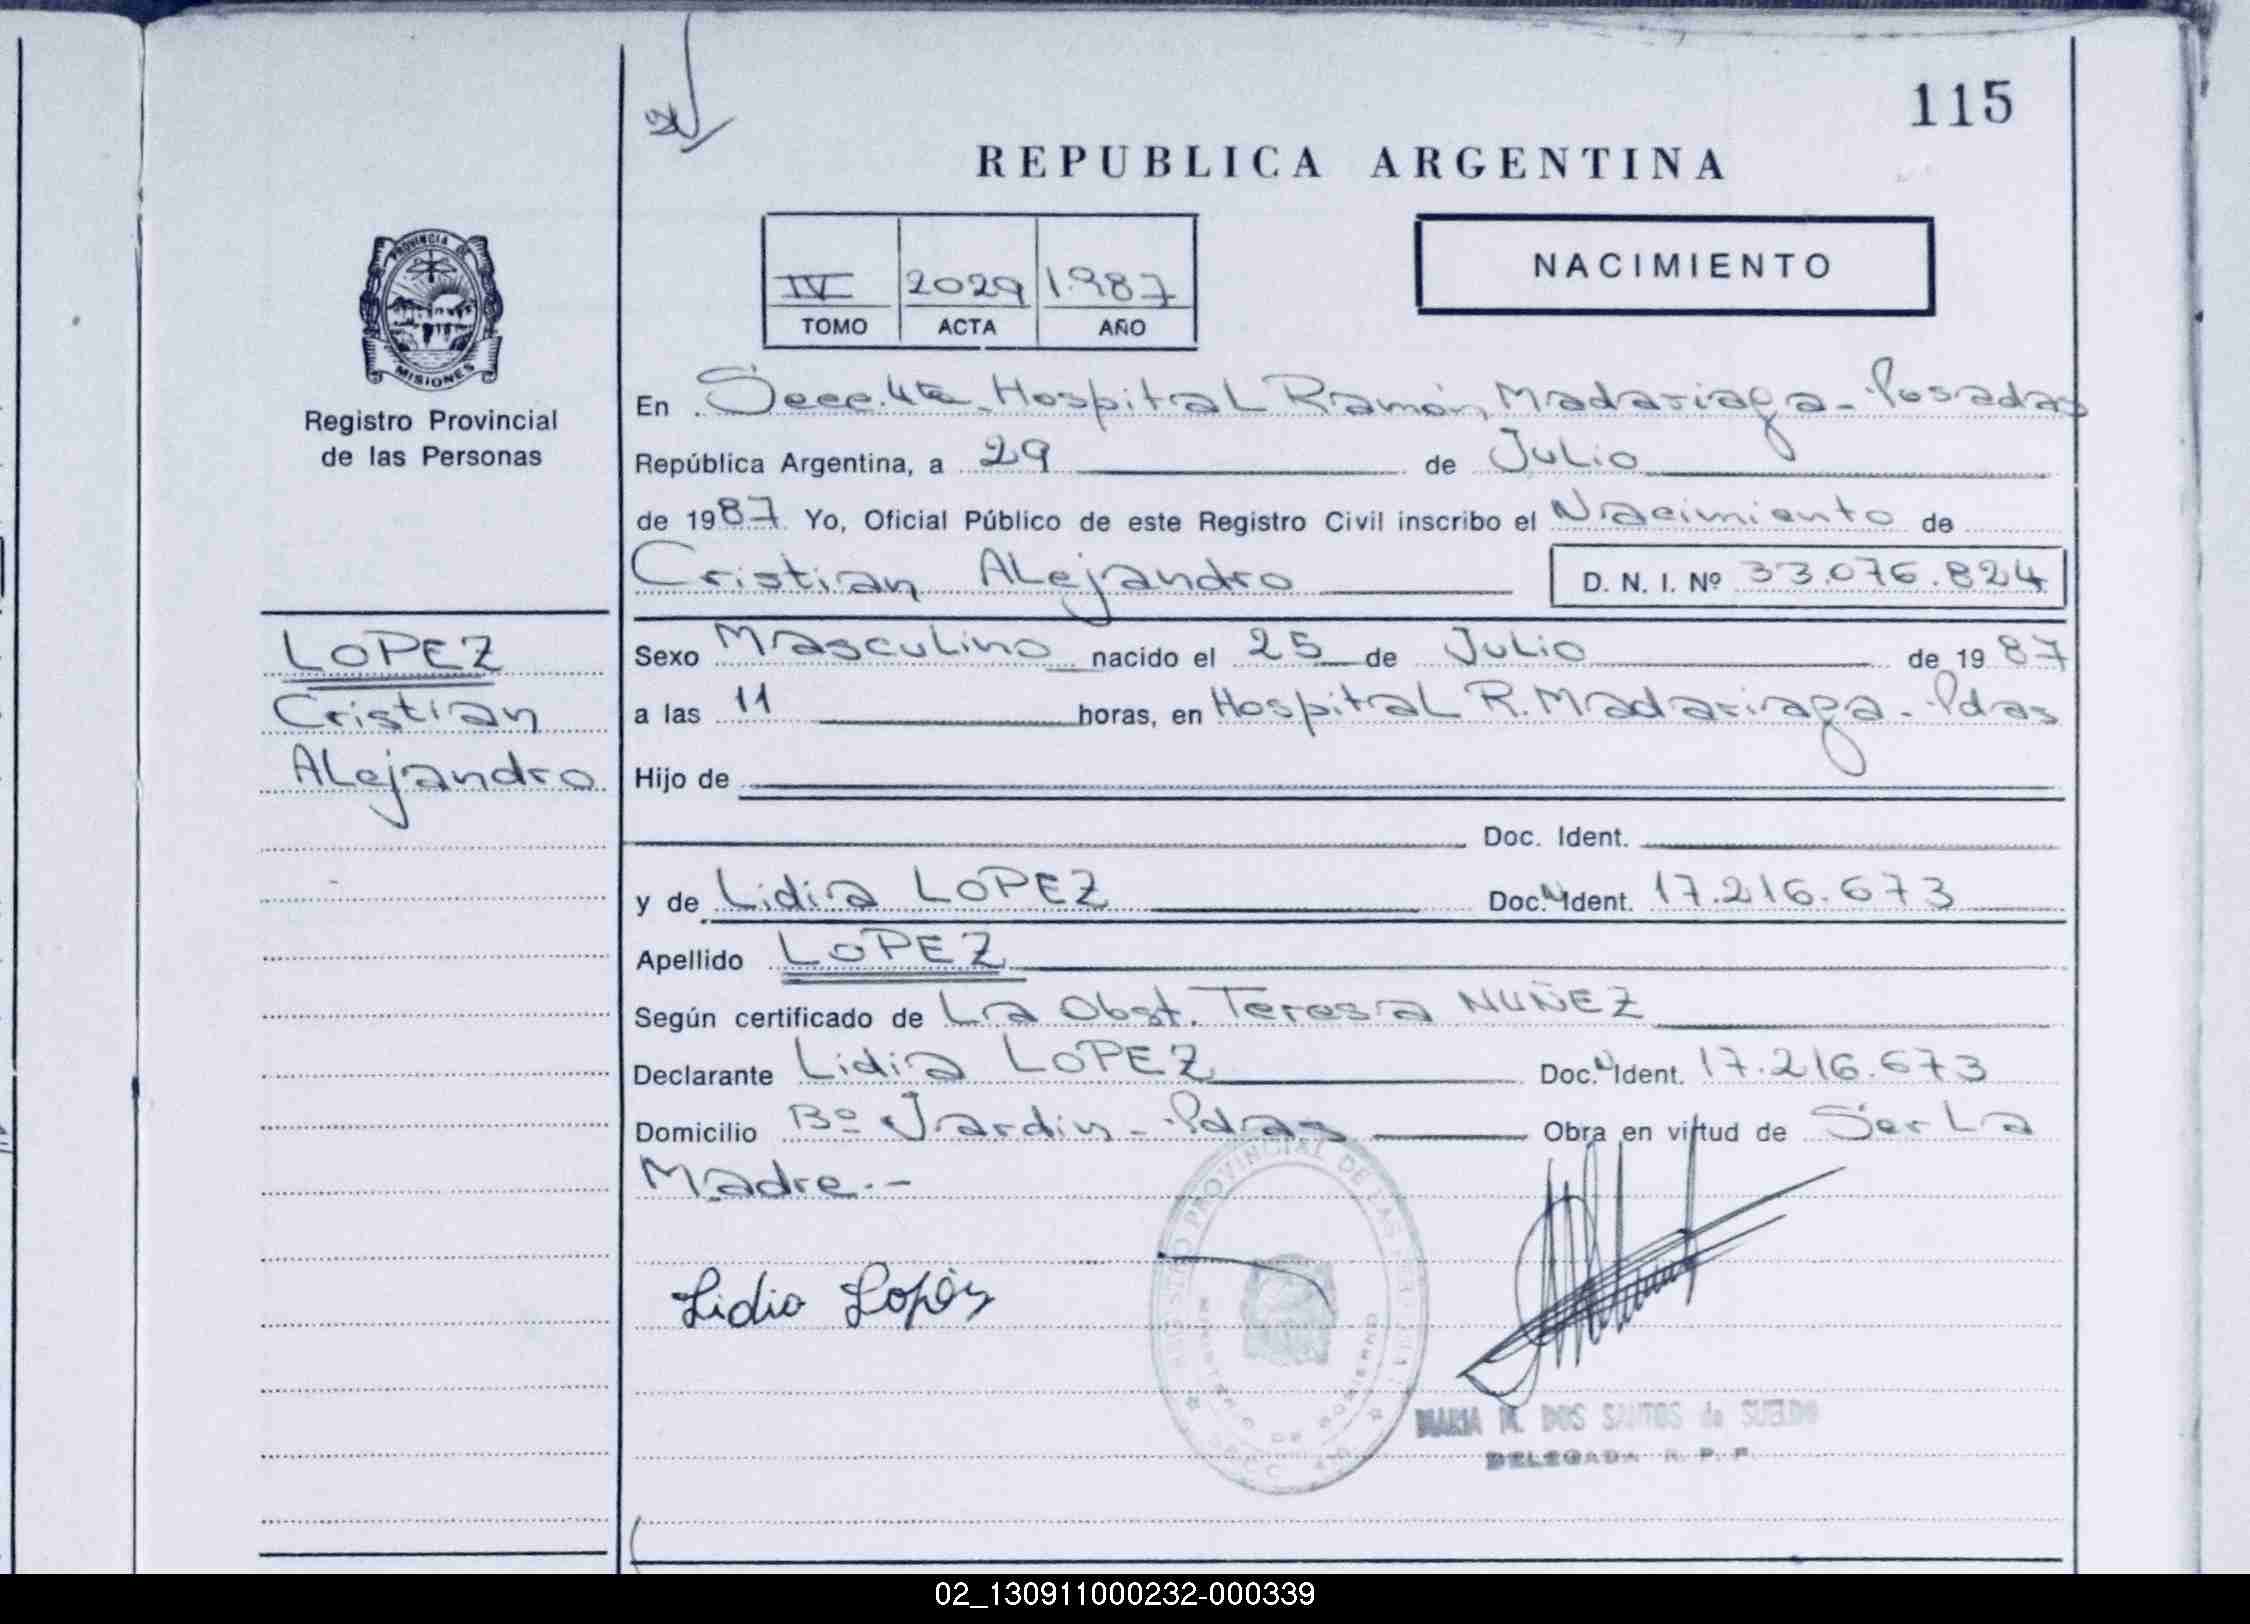 115
REPUBLICA ARGENTINA
PROVINCIA DE
MISIONES
Registro Provincial
de las Personas
IV 2029 1.987
TOMO ACTA AÑO
NACIMIENTO
En Secc. 4ta. Hospital Ramón Madariaga - Posadas
República Argentina, a 29 de Julio
de 1987 Yo, Oficial Público de este Registro Civil inscribo el Nacimiento de
Cristian Alejandro D. N. I. Nº 33.076.824
LOPEZ
Cristian
Alejandro
Sexo Masculino nacido el 25 de Julio de 1987
a las 11 horas, en Hospital R. Madariaga - Pdas
Hijo de
Doc. Ident.
y de Lidia LOPEZ Doc. Ident. 17.216.673
Apellido LOPEZ
Según certificado de La Obst. Teresa NUÑEZ
Declarante Lidia LOPEZ Doc. Ident. 17.216.673
Domicilio Bº Jardin - Pdas Obra en virtud de Ser La
Madre.-
Lidia Lopéz
REGISTRO PROVINCIAL DE LAS
MINISTERIO DE GOBIERNO
MARIA M. DOS SANTOS de SUELDO
DELEGADA R. P. P.
02_130911000232-000339